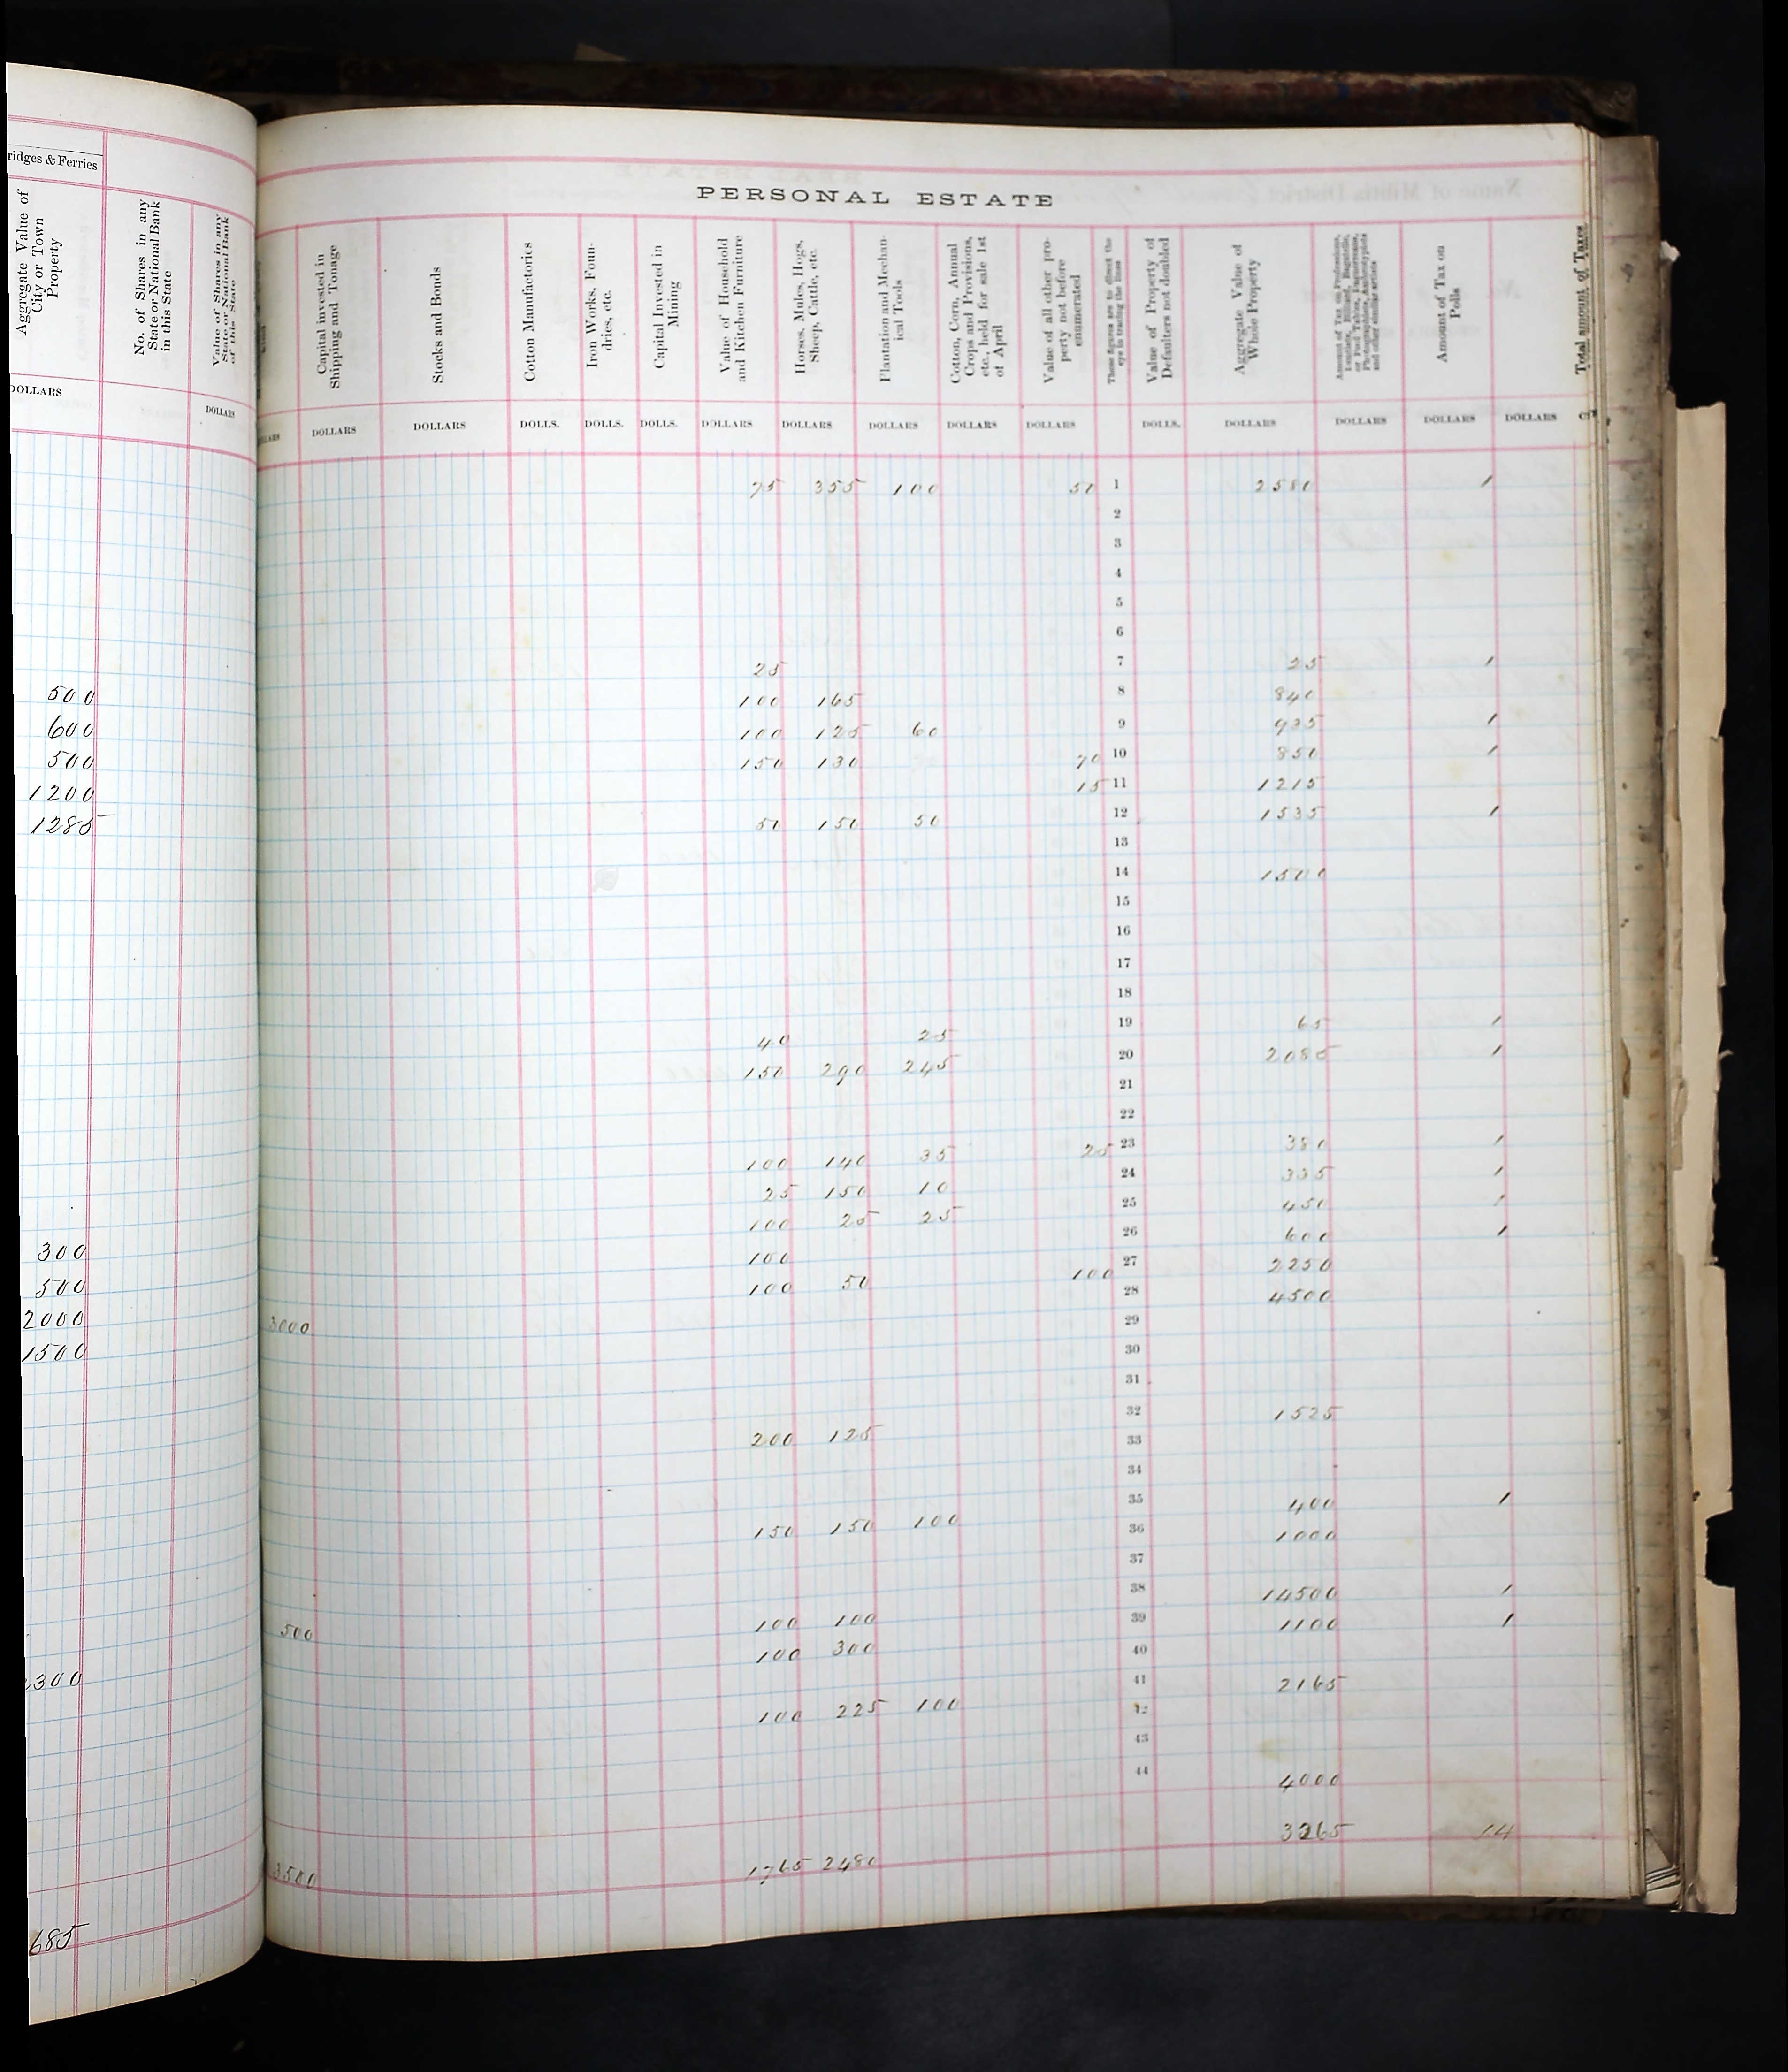 PERSONAL ESTATE
ridges & Ferries
Aggregate Value of City or Town Property
No. of Shares in any State or National Bank in this State
Value of Shares in any State or National Bank of this State
Capital invested in Shipping and Tonage
Stocks and Bonds
Cotton Manufactories
Iron Works, Foundries, etc.
Capital Invested in Mining
Value of Household and Kitchen Furniture
Horses, Mules, Hogs, Sheep, Cattle, etc.
Plantation and Mechanical Tools
Cotton, Corn, Annual Crops and Provisions, etc., held for sale 1st of April
Value of all other property not before enumerated
These figures are to direct the eye in tracing the lines
Value of Property of Defaulters not doubled
Aggregate Value of Whole Property
Amount of Tax on Polls
Total amount of Taxes
DOLLARS DOLLARS LLARS DOLLARS DOLLARS DOLLS. DOLLS. DOLLS. DOLLARS DOLLARS DOLLARS DOLLARS DOLLARS DOLLS. DOLLARS DOLLARS DOLLARS DOLLARS
75 355 100 50 1 2580 1
2
3
4
5
6
25 7 25 1
500 100 165 8 840
600 100 125 60 9 935 1
500 150 130 70 10 850 1
1200 15 11 1215
1285 50 150 50 12 1535 1
13
14 1500
15
16
17
18
40 25 19 65 1
150 290 245 20 2085 1
21
22
100 140 35 25 23 380 1
25 150 10 24 335 1
100 25 25 25 450 1
300 100 26 600 1
500 100 50 100 27 2250
2000 3000 28 4500
1500 29
30
31
200 125 32 1525
33
34
150 150 100 35 400 1
36 1000
37
100 100 38 14500 1
500 100 300 39 1100 1
40
300 100 225 100 41 2165
42
43
44 4000
3500 1765 2480 3265 14
685